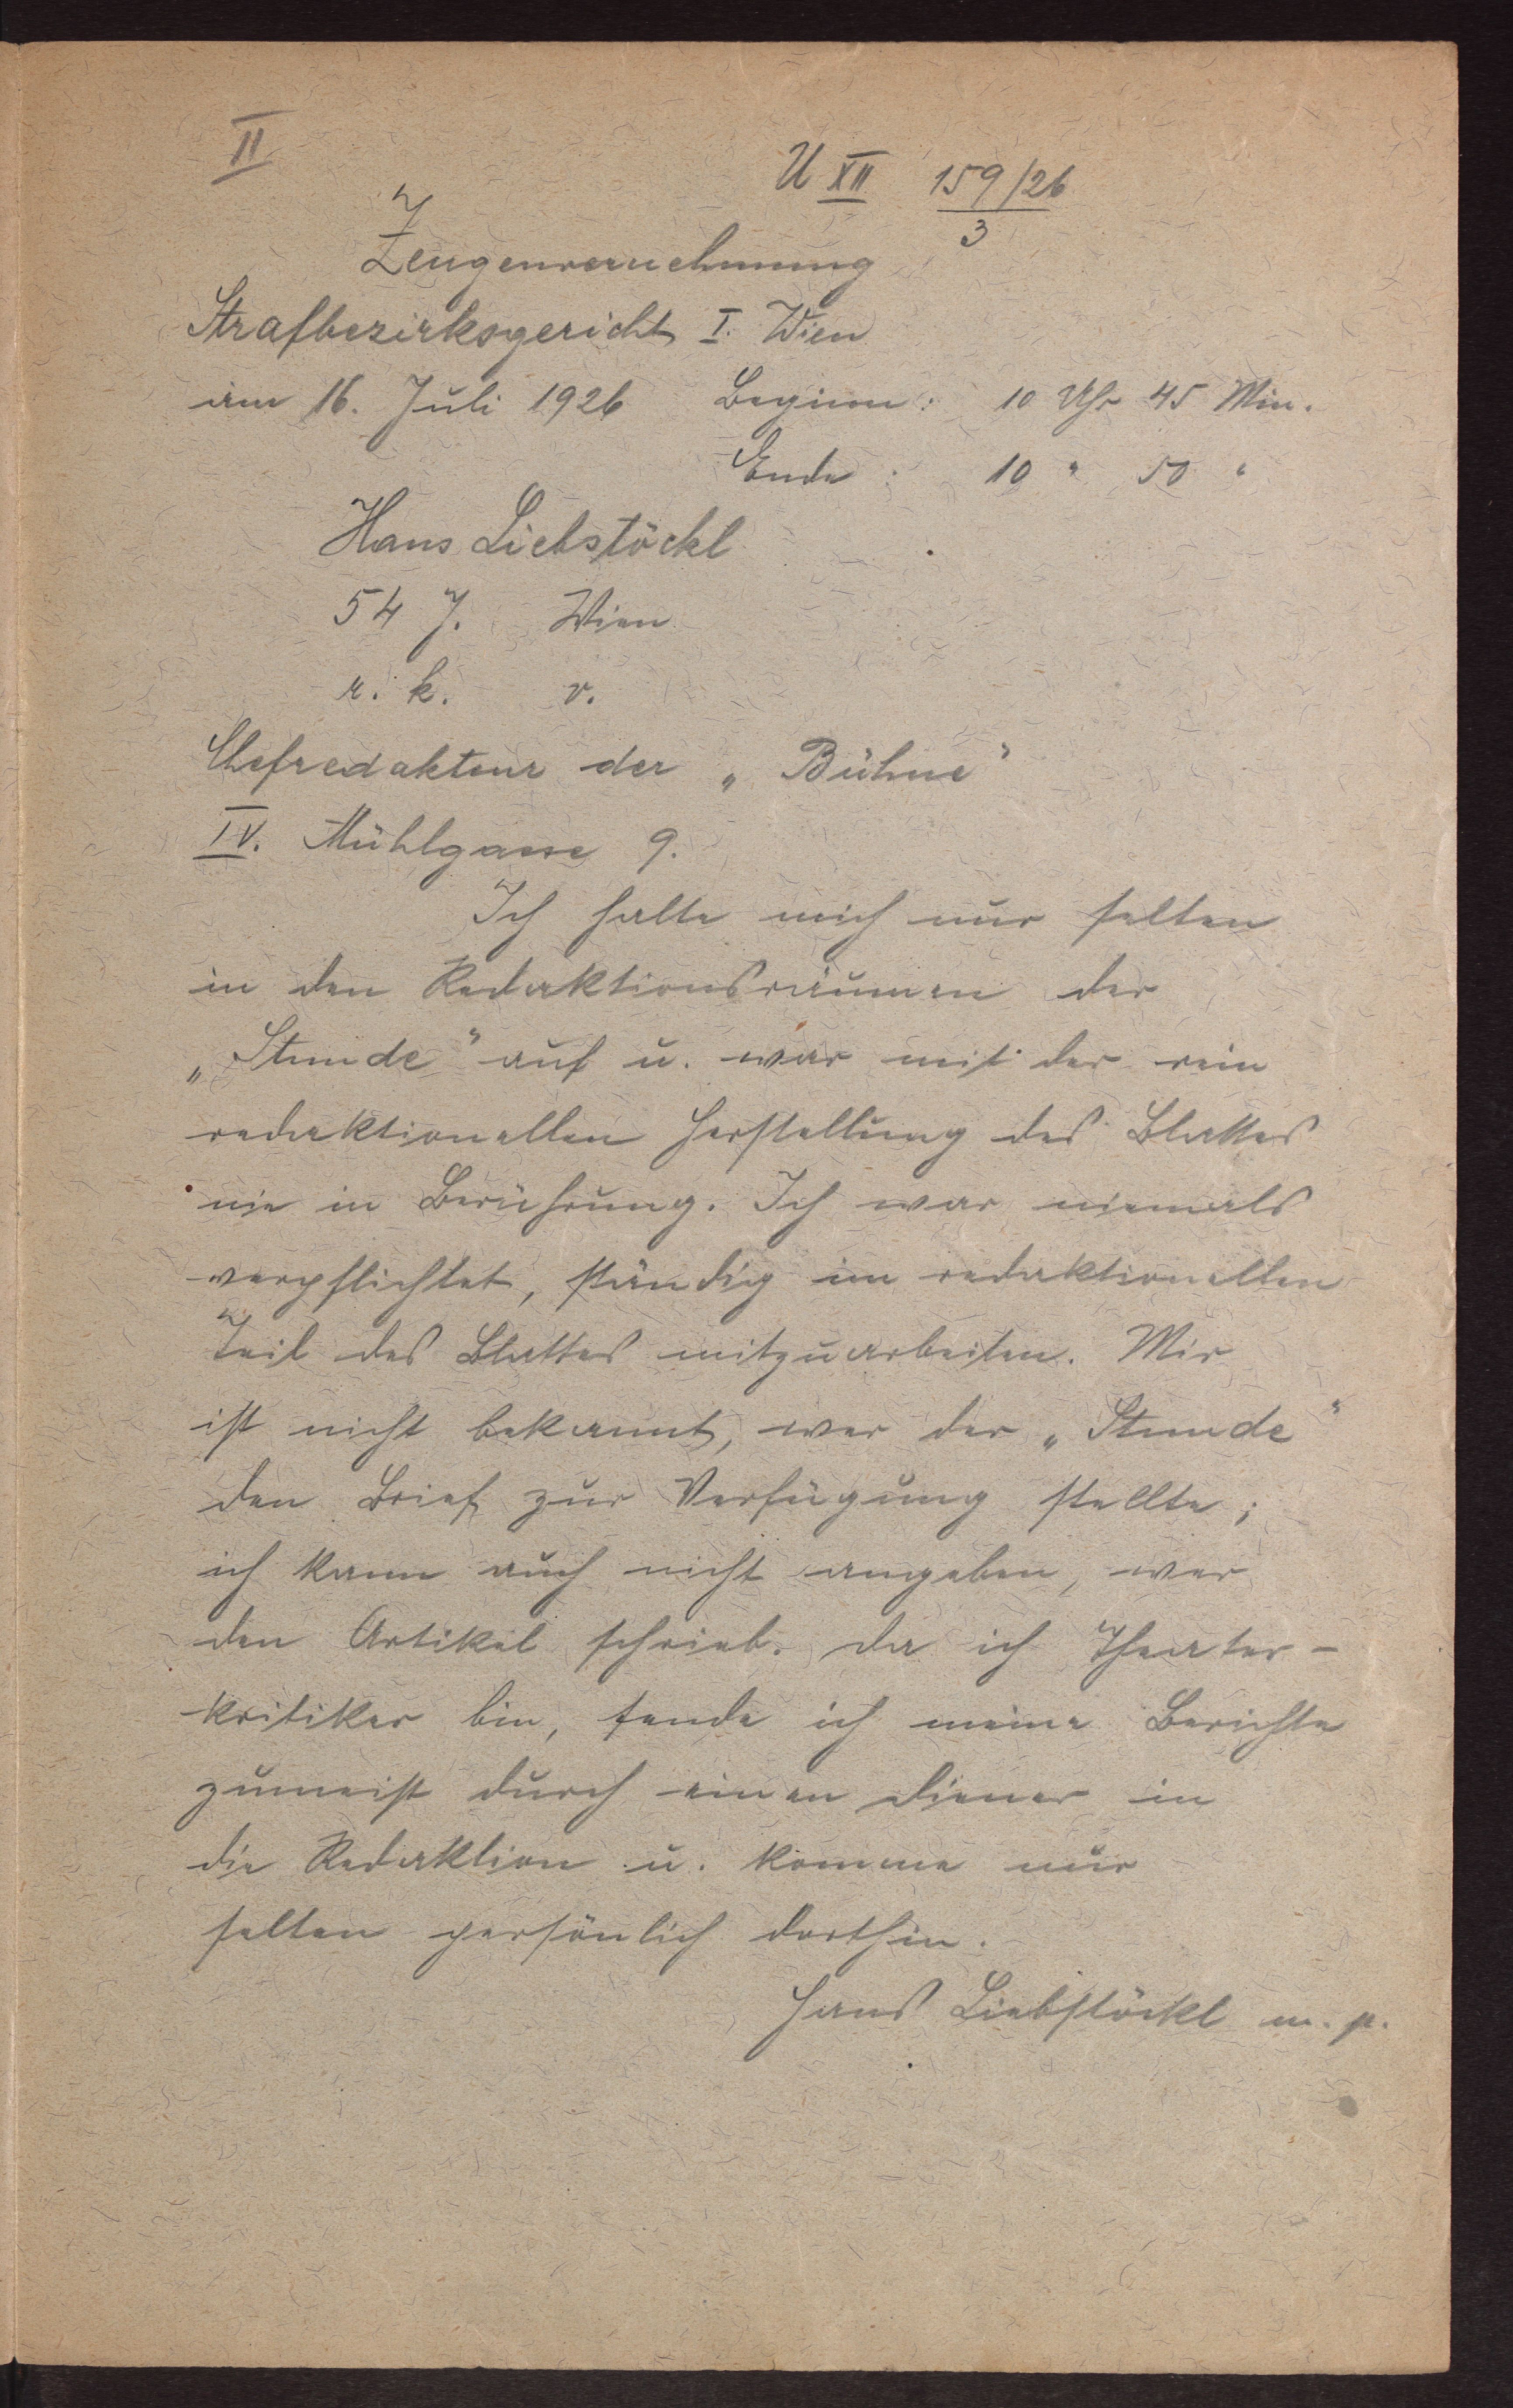 II
U XII 159/26
3
Zeugenvernehmung
Strafbezirksgericht I. Wien
am 16. Juli 1926 Beginn: 10 Uhr 45 Min.
Ende: 10 " 50 "
Hans Liebstöckl
54 J. Wien
r. k. v.
Chefredakteur der „Bühne"
IV. Mühlgasse 9.
Ich halte mich nur selten
in den Redaktionsräumen der
„Stunde" auf u. war mit der rein
redaktionellen Herstellung des Blattes
nie in Berührung. Ich war niemals
verpflichtet, ständig im redaktionellen
Teil des Blattes mitzuarbeiten. Mir
ist nicht bekannt, wer der „Stunde"
den Brief zur Verfügung stellte;
ich kann auch nicht angeben, wer
den Artikel schrieb. Da ich Theater-
kritiker bin, sende ich meine Berichte
zumeist durch einen Diener in
die Redaktion u. komme nur
selten persönlich dorthin.
Hans Liebstöckl m. p.